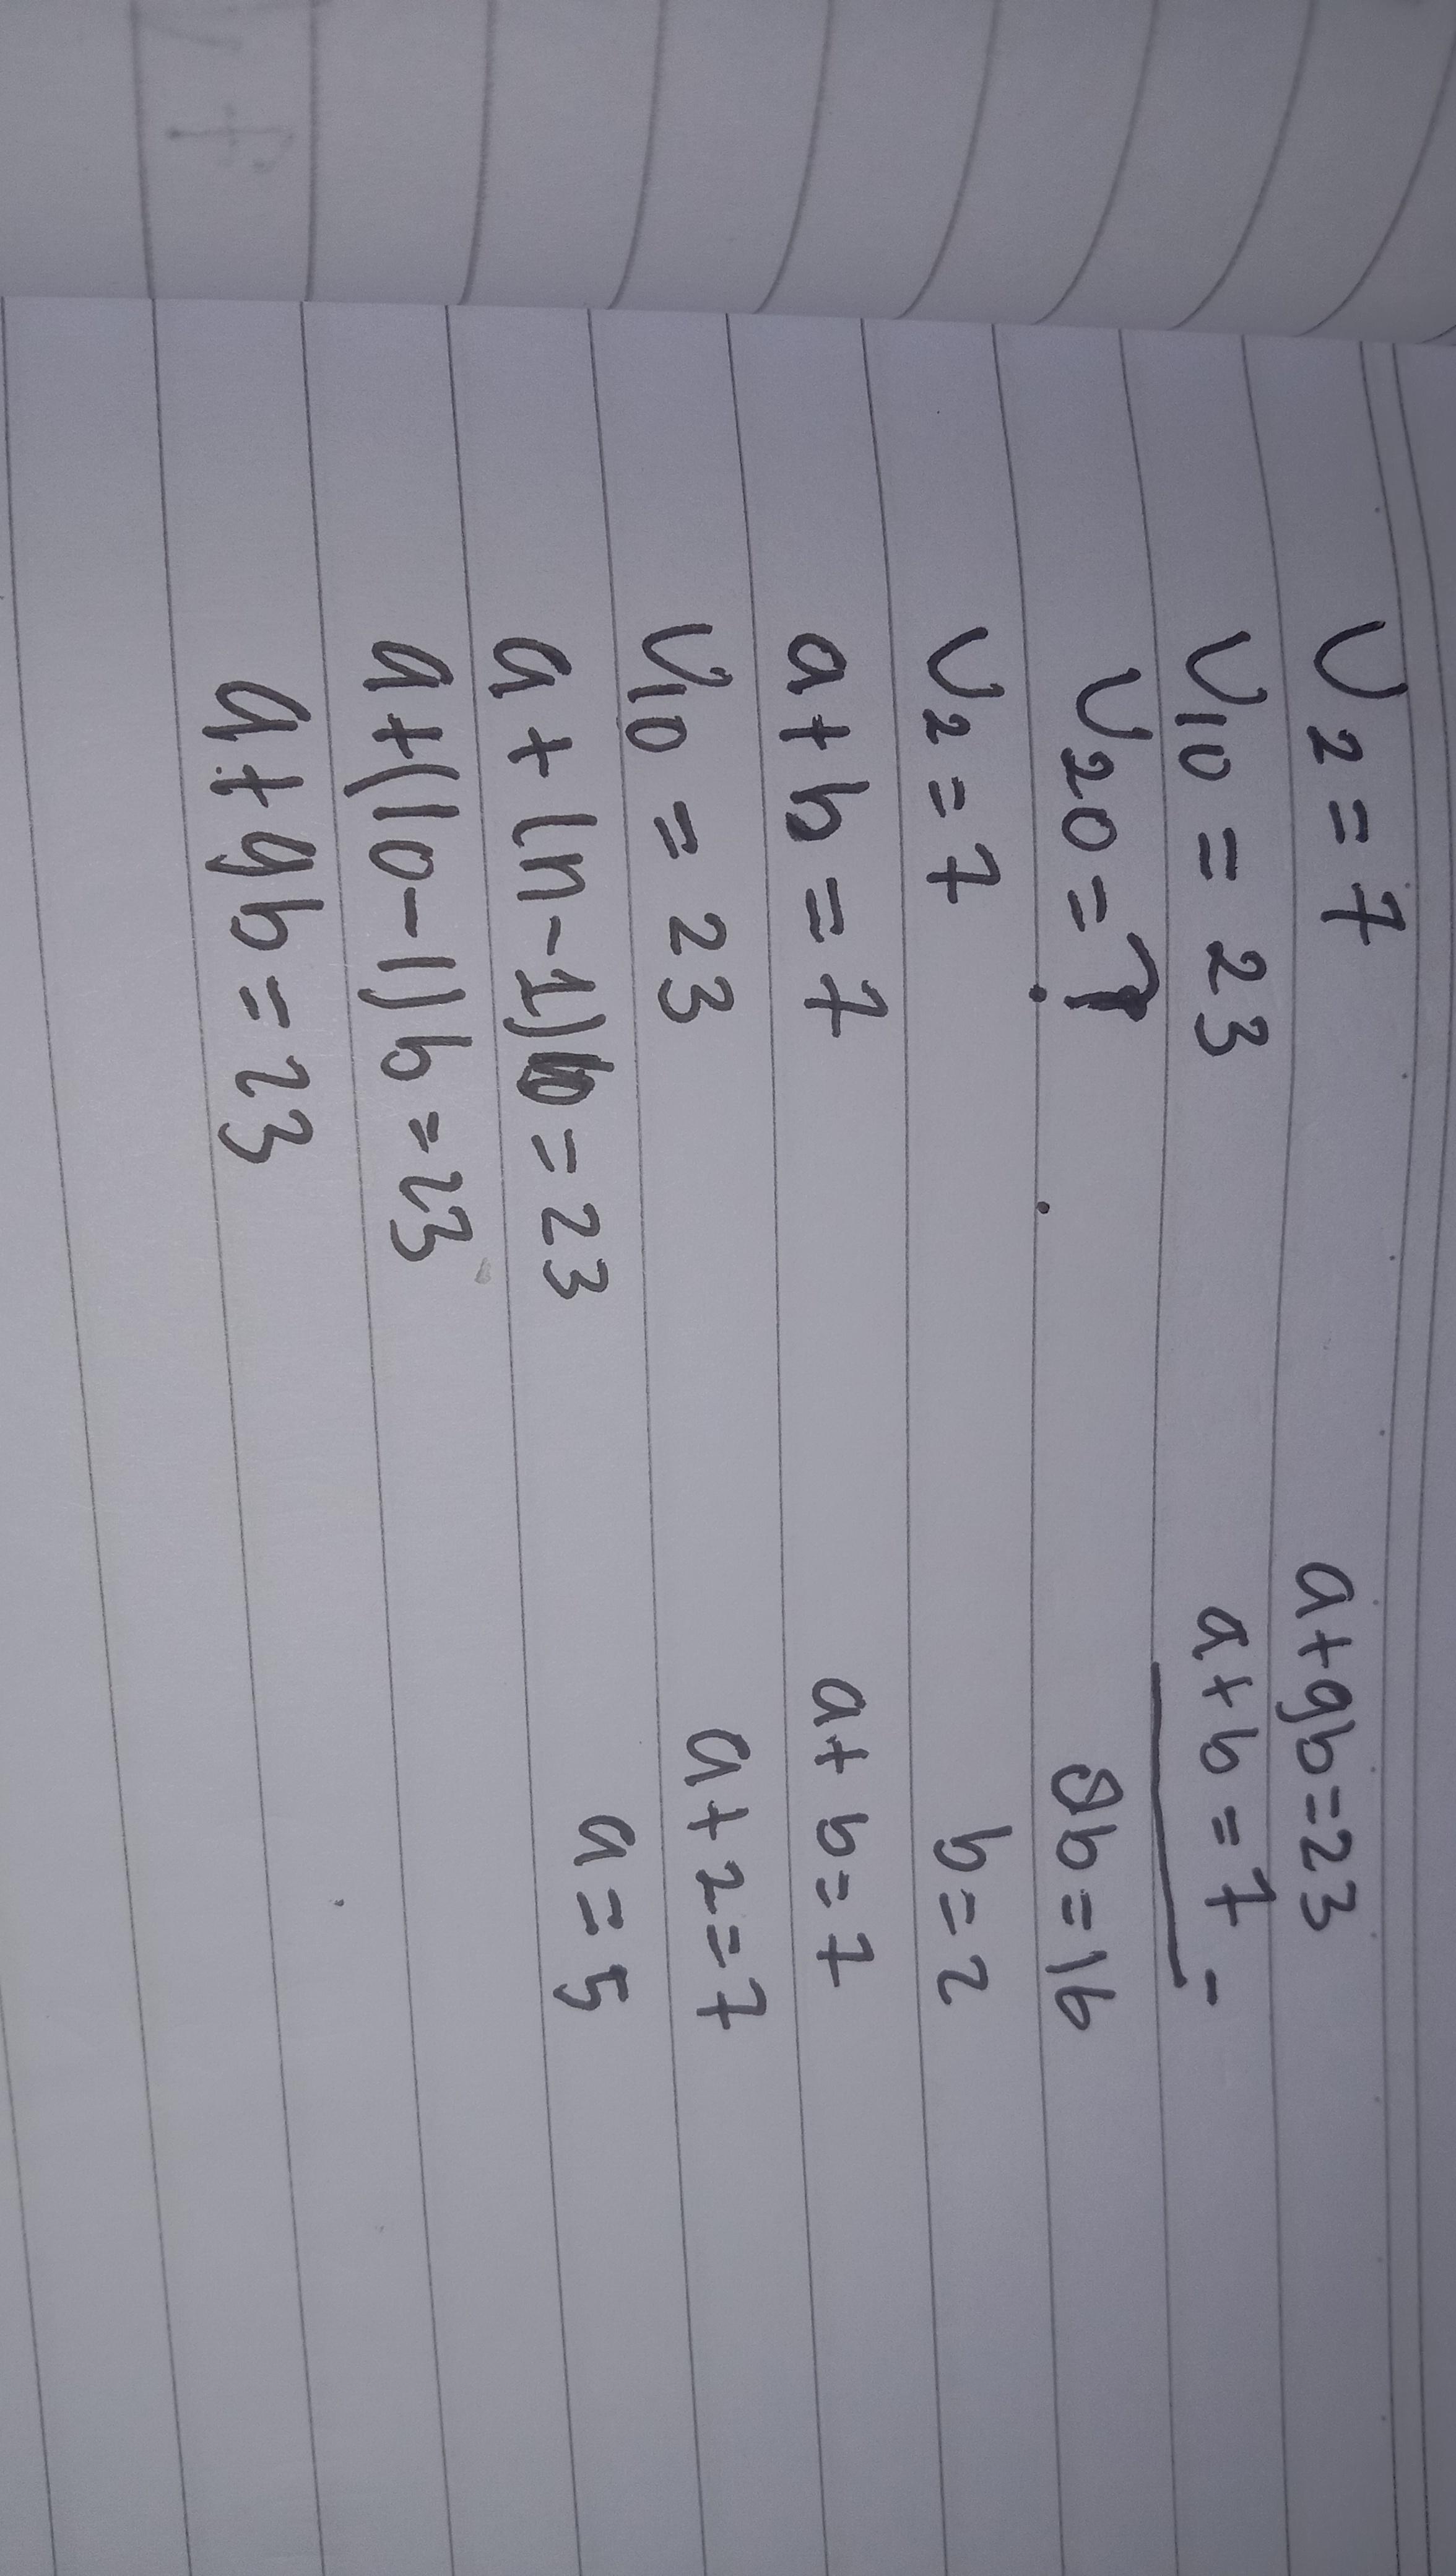 U2 = 7
U10 = 23
U20 = ?
U2 = 7
a + b = 7
U10 = 23
a + (n-1)b = 23
a + (10-1)b = 23
a + 9b = 23
a + 9b = 23
a + b = 7 -
8b = 16
b = 2
a + b = 7
a + 2 = 7
a = 5